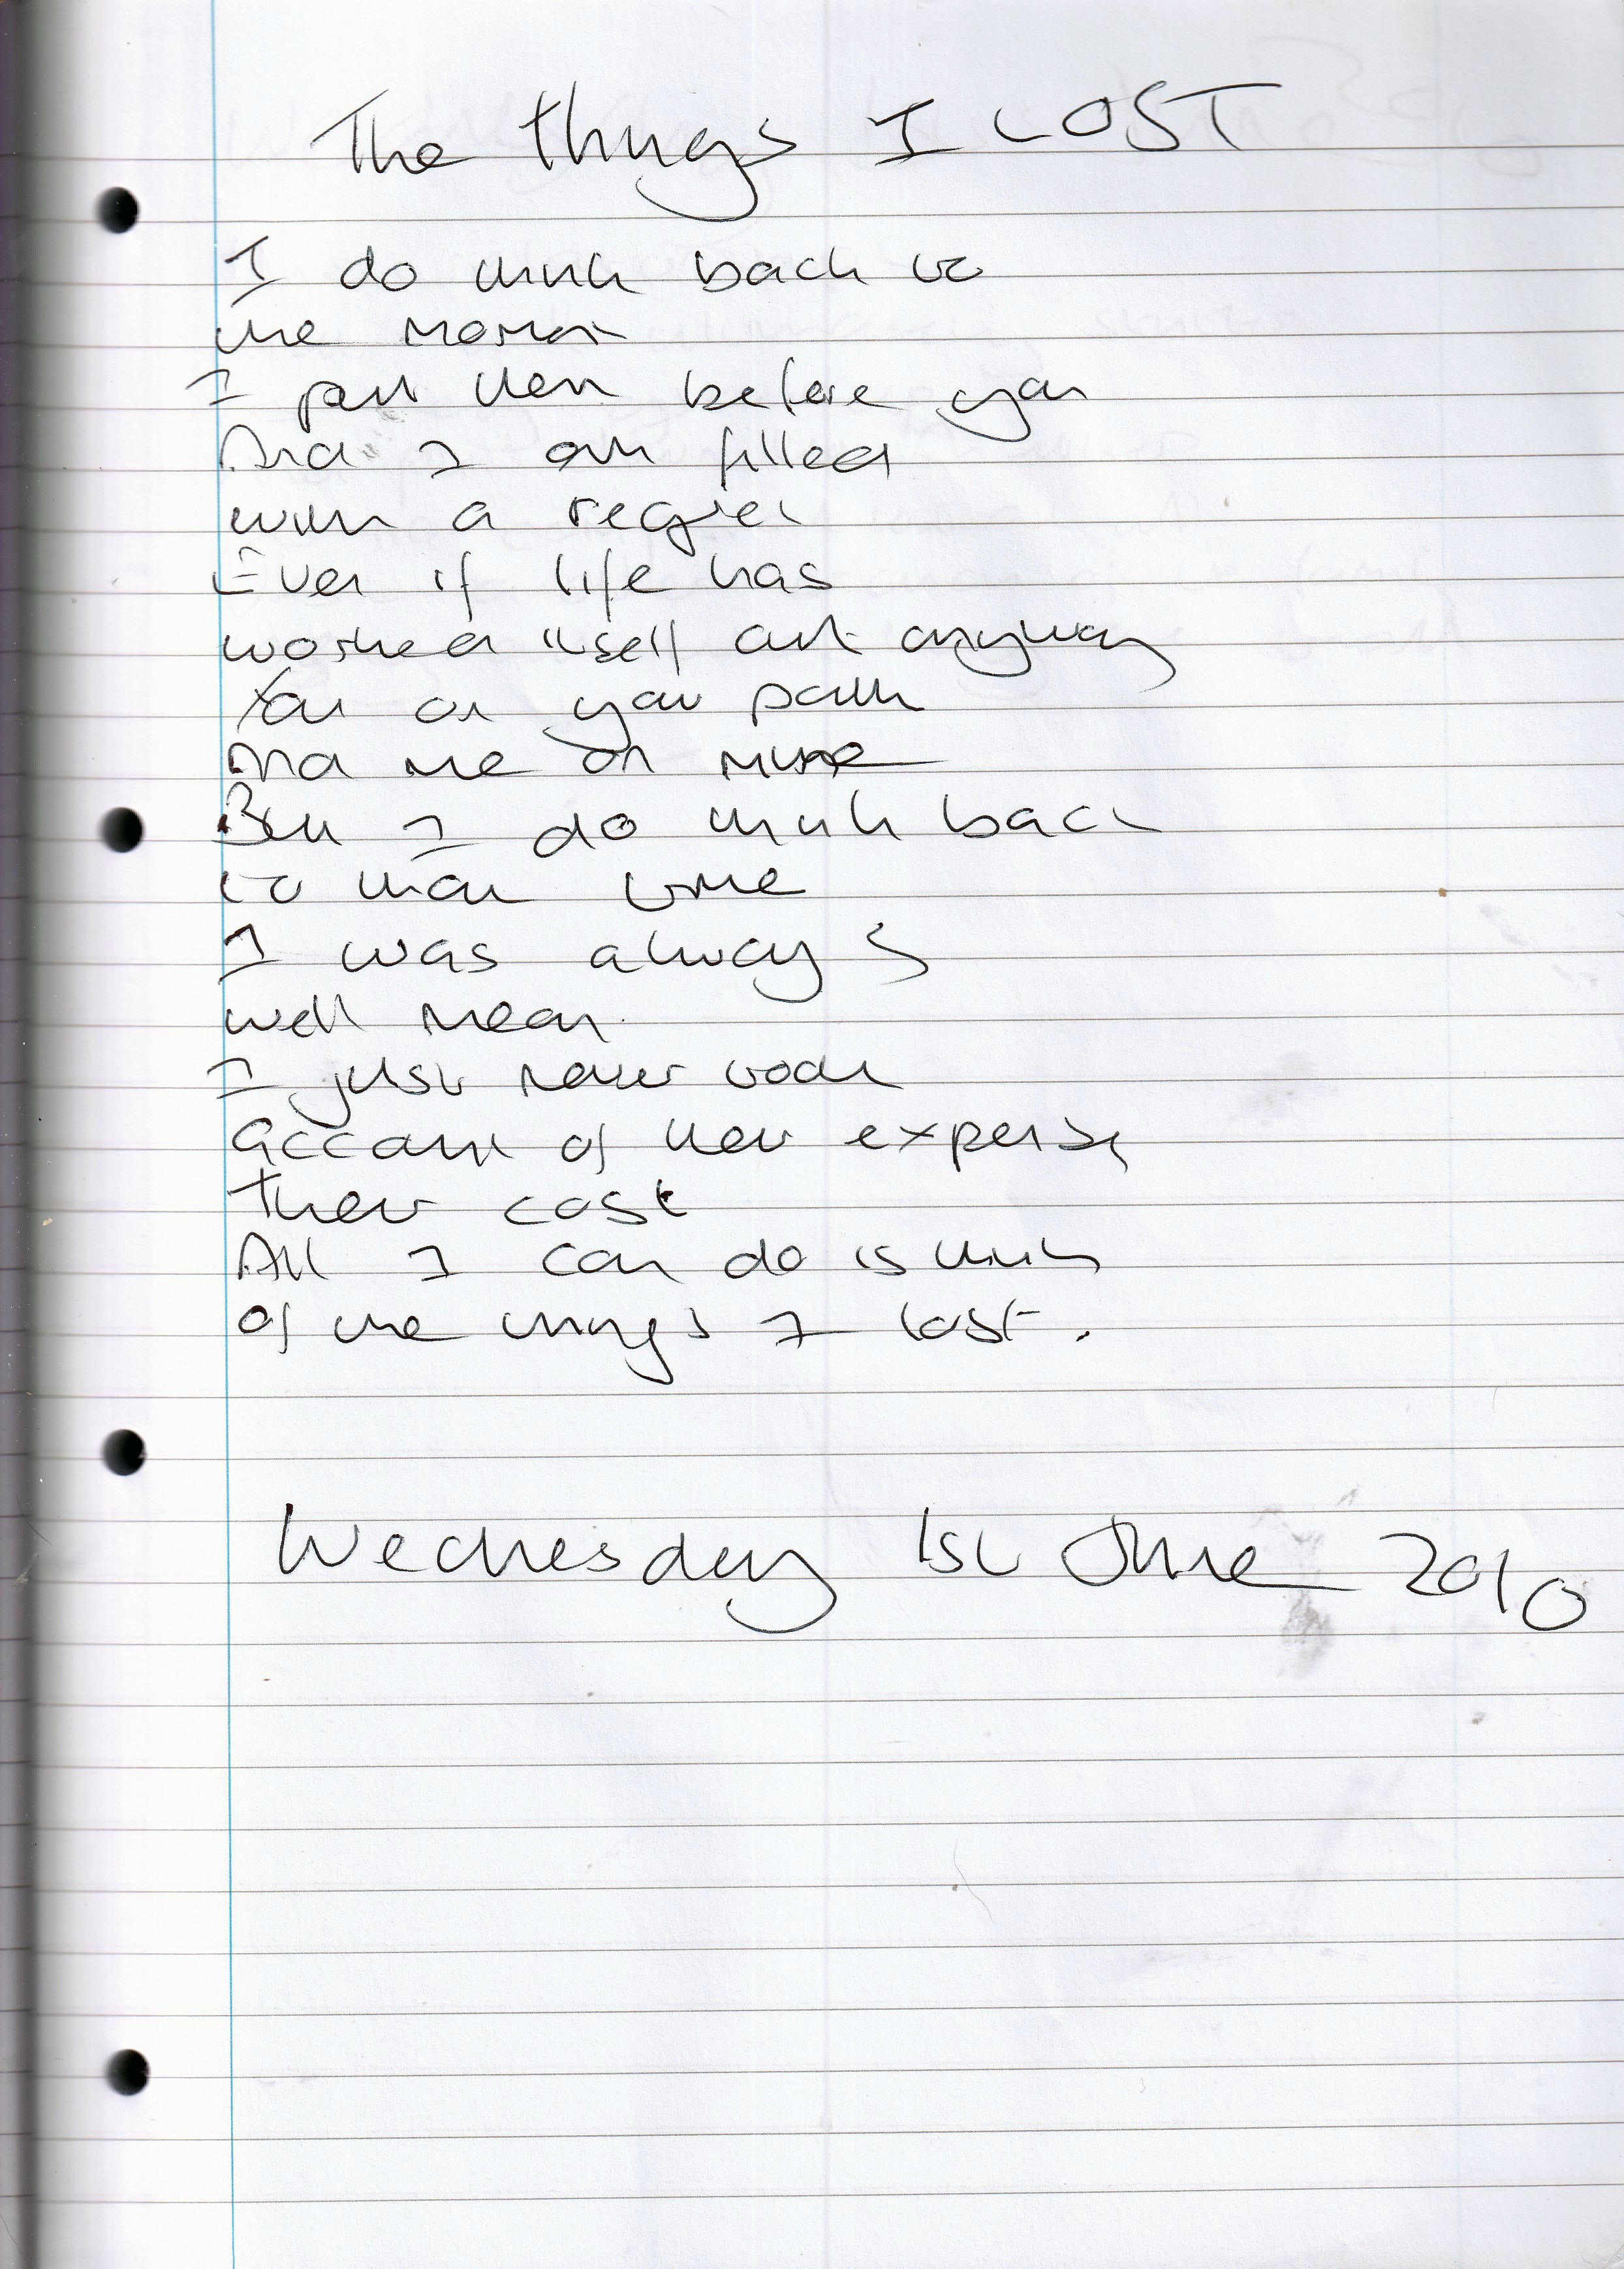 The things I LOST
I do think back to
the moment
I put them before you
And I am filled
with a regret
Even if life has
worked itself out anyway
You on your path
And me on mine
But I do think back
to that time
I was always
well meant
I just never took
account of their expense
their cost
All I can do is think
of the things I lost.
Wednesday 1st June 2010